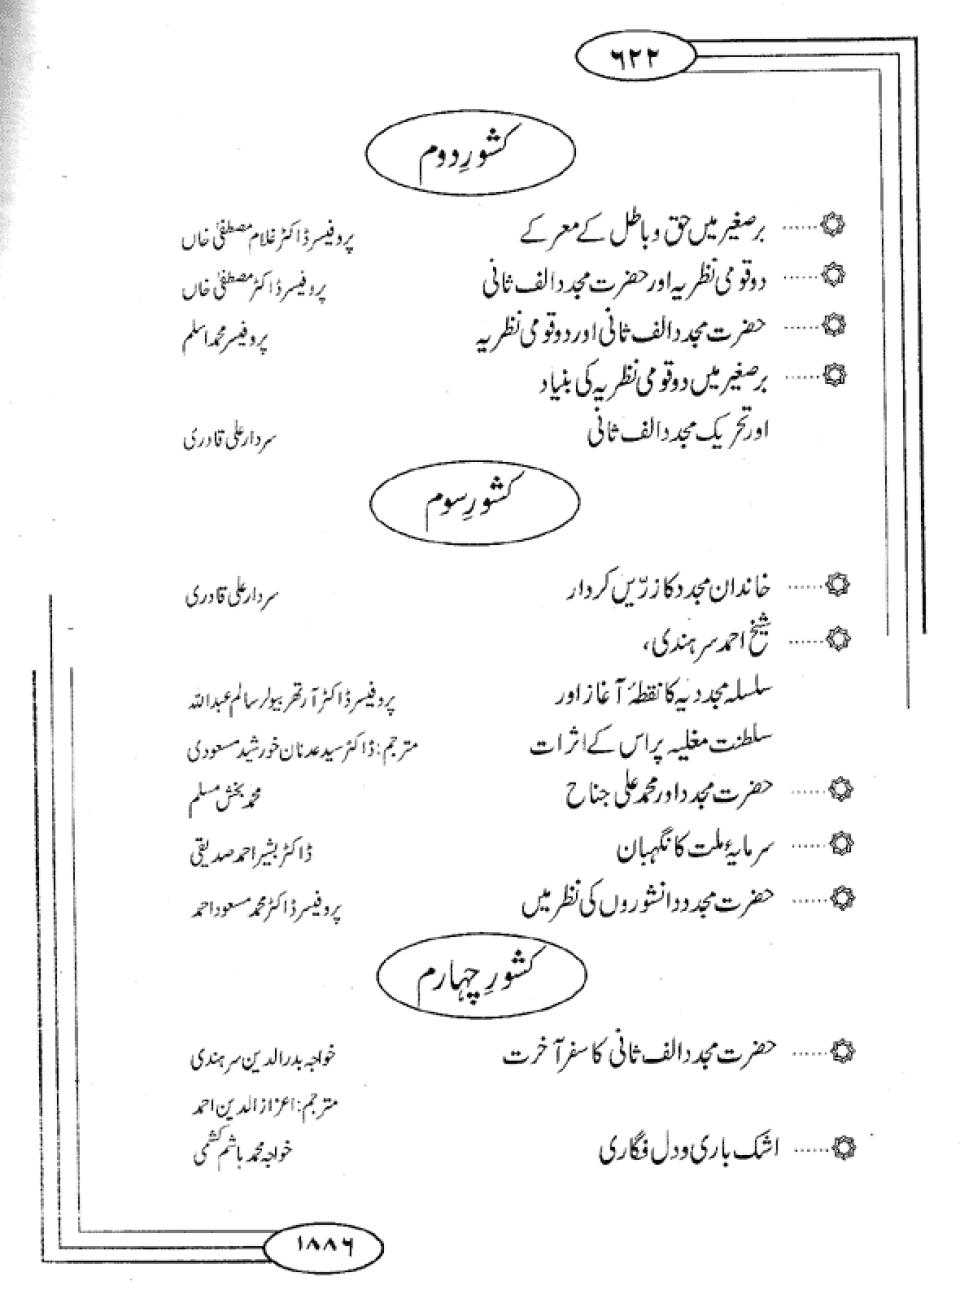 ۶۲۲
کشورِ دوم
برصغیر میں حق و باطل کے معرکے ...... پروفیسر ڈاکٹر غلام مصطفیٰ خاں
دو قومی نظریہ اور حضرت مجدد الف ثانی ...... پروفیسر ڈاکٹر مصطفیٰ خاں
حضرت مجدد الف ثانی اور دو قومی نظریہ ...... پروفیسر محمد اسلم
برصغیر میں دو قومی نظریہ کی بنیاد ......
اور تحریک مجدد الف ثانی سردار علی قادری
کشورِ سوم
خاندان مجدد کا زرّیں کردار ...... سردار علی قادری
شیخ احمد سرہندی، ......
سلسلہ مجددیہ کا نقطۂ آغاز اور پروفیسر ڈاکٹر آرتھر بیولر سالم عبداللہ
سلطنت مغلیہ پر اس کے اثرات مترجم: ڈاکٹر سید عدنان خورشید مسعودی
حضرت مجدد اور محمد علی جناح ...... محمد بخش مسلم
سرمایۂ ملت کا نگہبان ...... ڈاکٹر بشیر احمد صدیقی
حضرت مجدد دانشوروں کی نظر میں ...... پروفیسر ڈاکٹر محمد مسعود احمد
کشورِ چہارم
حضرت مجدد الف ثانی کا سفر آخرت ...... خواجہ بدرالدین سرہندی
مترجم: اعزاز الدین احمد
اشک باری و دل فگاری ...... خواجہ محمد ہاشم کشمی
۱۸۸۶